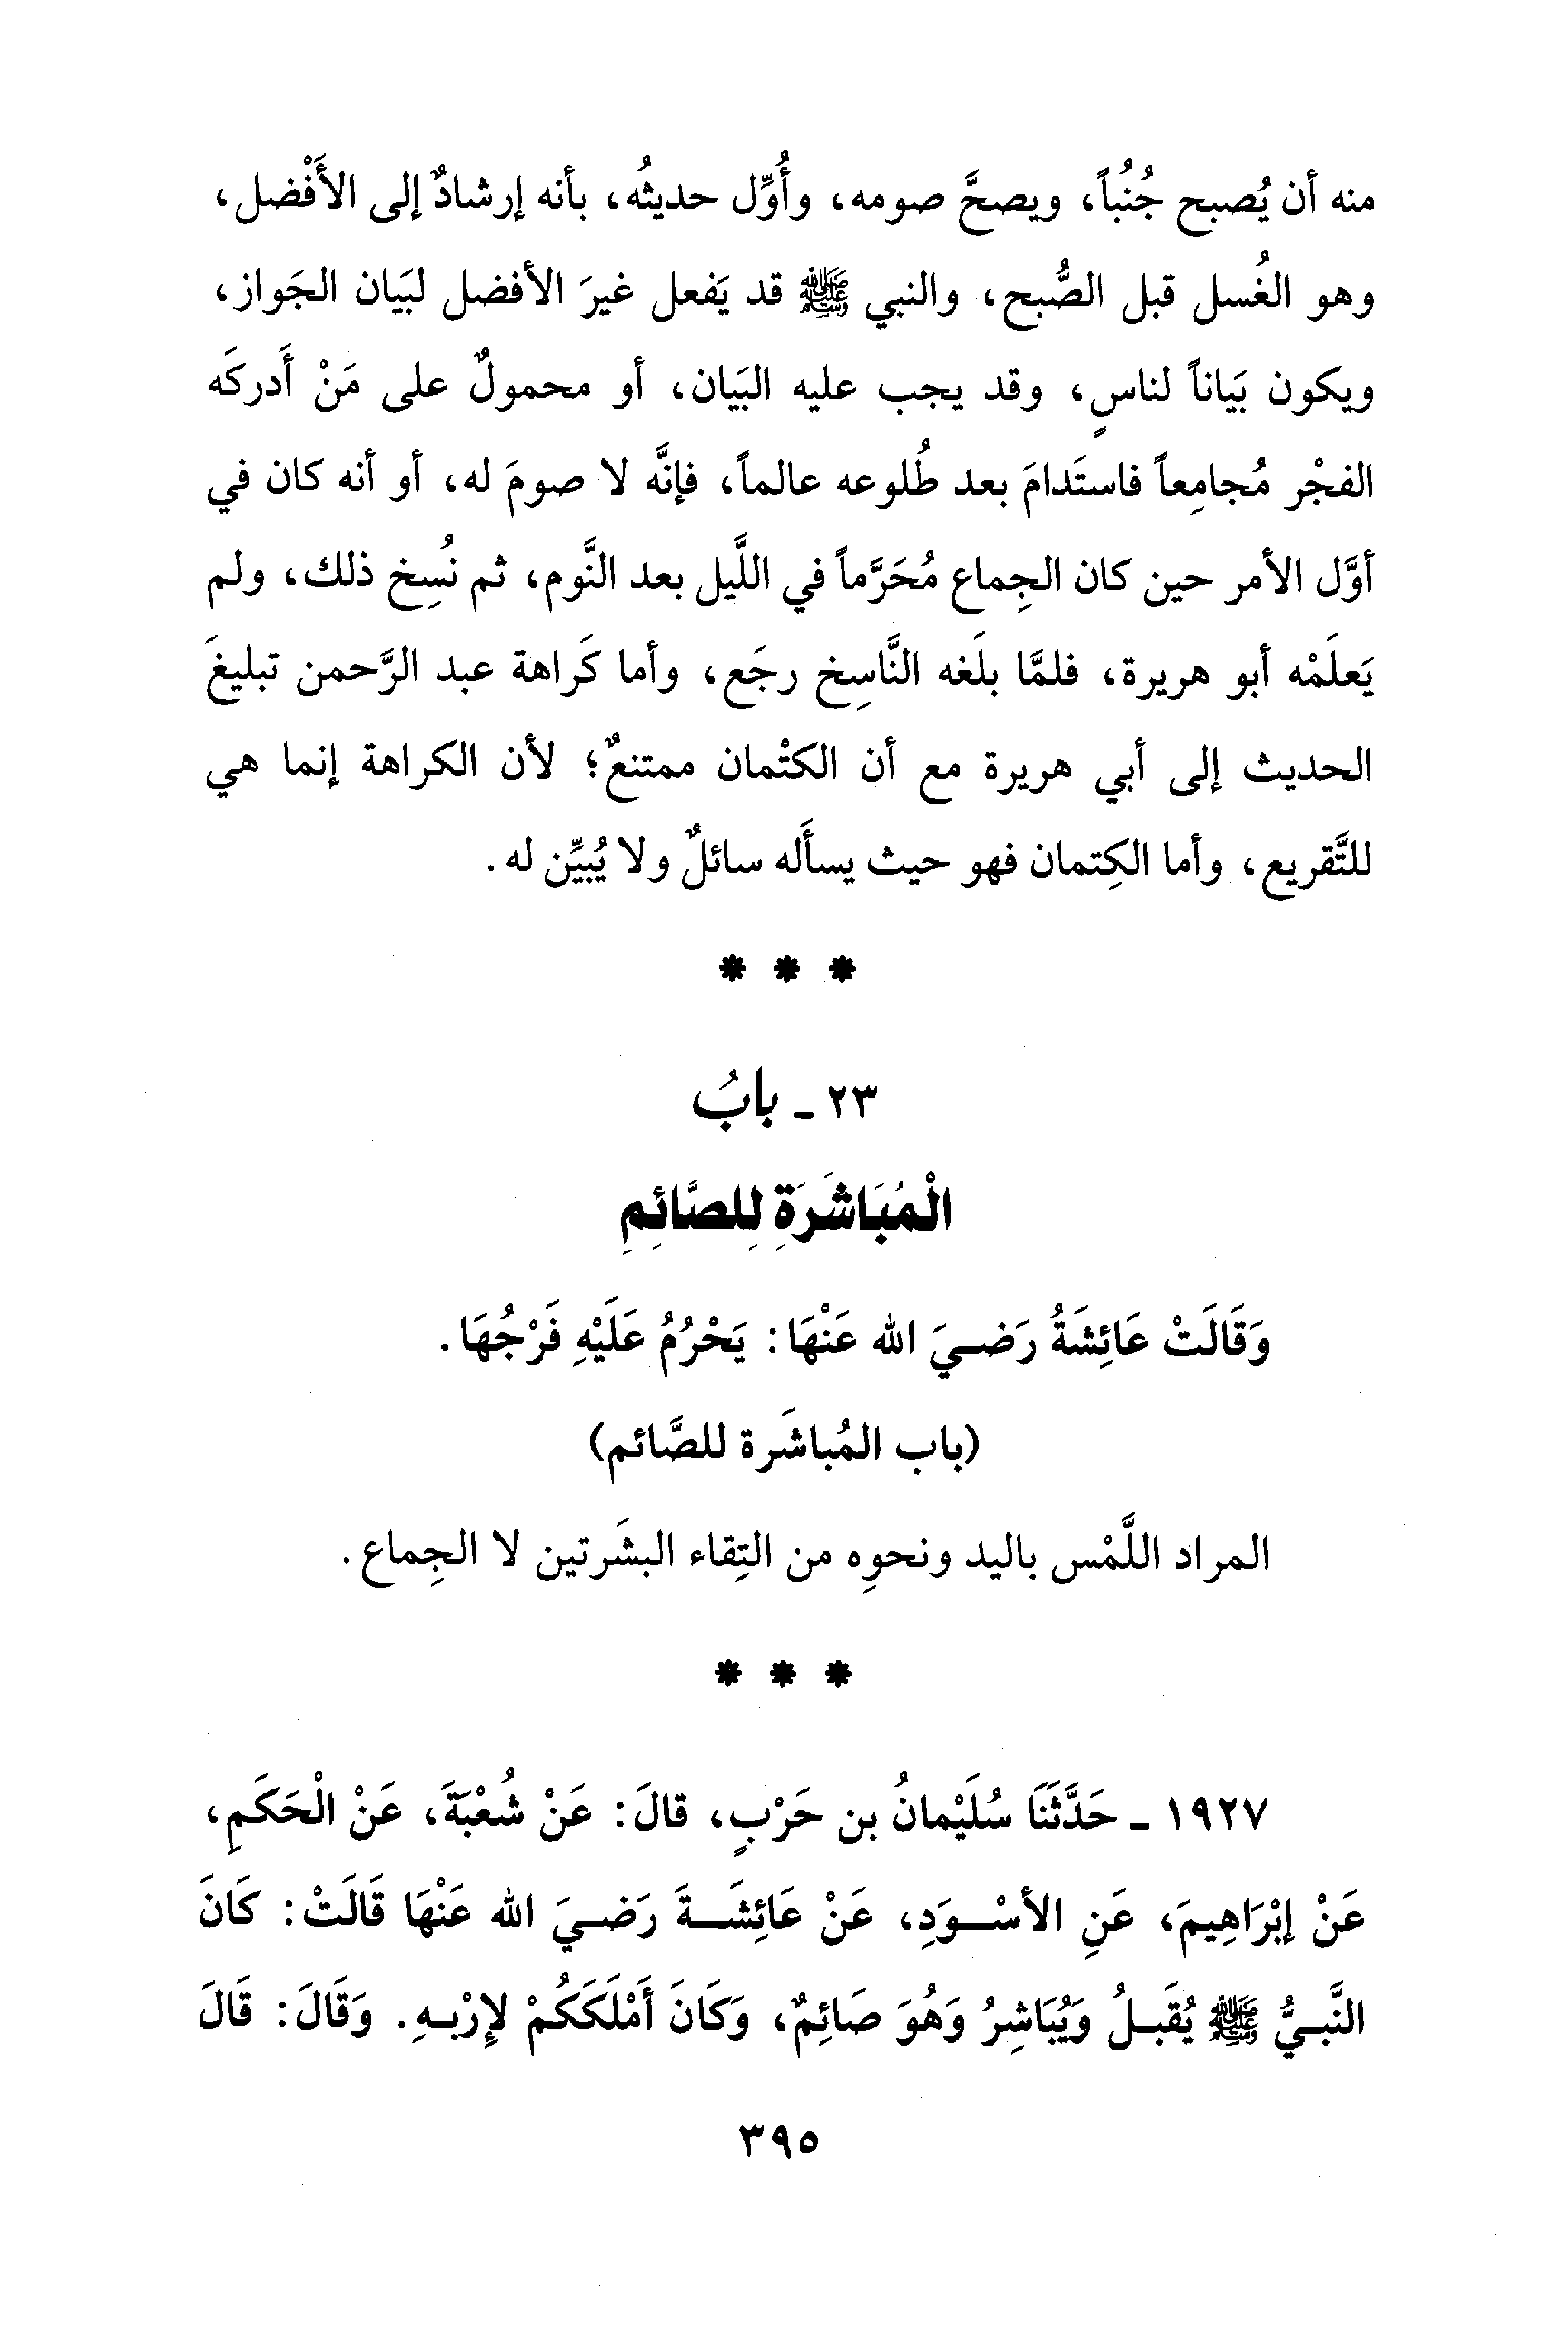 منه أن يُصبح جُنُباً، ويصحَّ صومه، وأُوِّل حديثُه، بأنه إرشادٌ إلى الأَفْضل،
وهو الغُسل قبل الصُّبح، والنبي ﷺ قد يَفعل غيرَ الأفضل لبَيان الجَواز،
ويكون بَياناً لناسٍ، وقد يجب عليه البَيان، أو محمولٌ على مَنْ أَدركَه
الفجْر مُجامِعاً فاستَدامَ بعد طُلوعه عالماً، فإنَّه لا صومَ له، أو أنه كان في
أوَّل الأمر حين كان الجِماع مُحَرَّماً في اللَّيل بعد النَّوم، ثم نُسِخ ذلك، ولم
يَعلَمْه أبو هريرة، فلمَّا بلَغه النَّاسِخ رجَع، وأما كَراهة عبد الرَّحمن تبليغَ
الحديث إلى أبي هريرة مع أن الكتْمان ممتنعٌ؛ لأن الكراهة إنما هي
للتَّقريع، وأما الكِتمان فهو حيث يسأَله سائلٌ ولا يُبيِّن له.
* * *
٢٣ - بابُ
الْمُبَاشَرَةِ لِلصَّائِمِ
وَقَالَتْ عَائِشَةُ رَضِيَ الله عَنْهَا: يَحْرُمُ عَلَيْهِ فَرْجُهَا.
(باب المُباشَرة للصَّائم)
المراد اللَّمْس باليد ونحوِه من التِقاء البشَرتين لا الجِماع.
* * *
١٩٢٧ - حَدَّثَنَا سُلَيْمانُ بن حَرْبٍ، قالَ: عَنْ شُعْبَةَ، عَنْ الْحَكَمِ،
عَنْ إِبْرَاهِيمَ، عَنِ الأسْوَدِ، عَنْ عَائِشَةَ رَضيَ الله عَنْهَا قَالَتْ: كَانَ
النَّبيُّ ﷺ يُقَبلُ وَيُبَاشِرُ وَهُوَ صَائِمٌ، وَكَانَ أَمْلَكَكُمْ لإِرْبهِ. وَقَالَ: قَالَ
٣٩٥